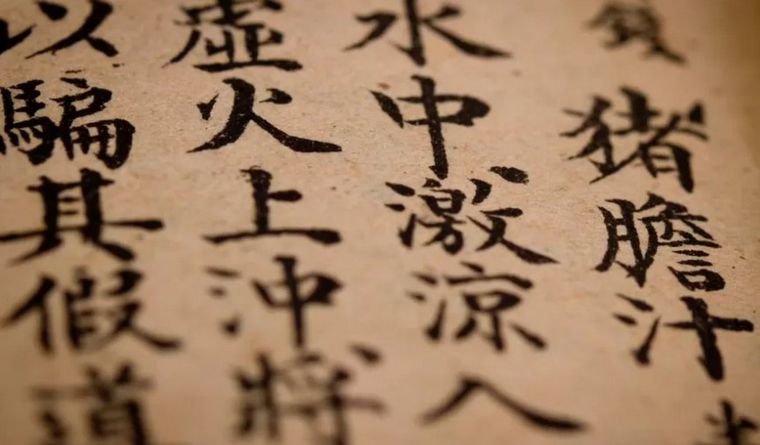 錢猪膽汁
水中激涼入
虛火上沖將
以騙其假道